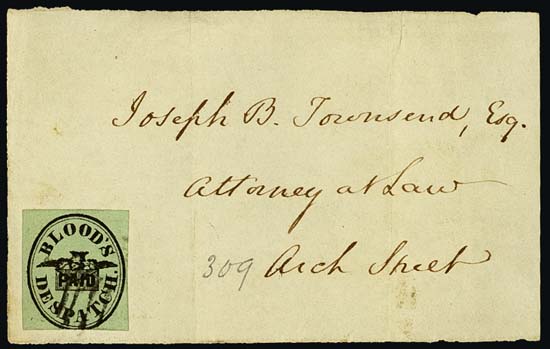 Joseph B. Townsend, Esq.
Attorney at Law
309 Arch Street
BLOOD'S
PAID
DESPATCH.